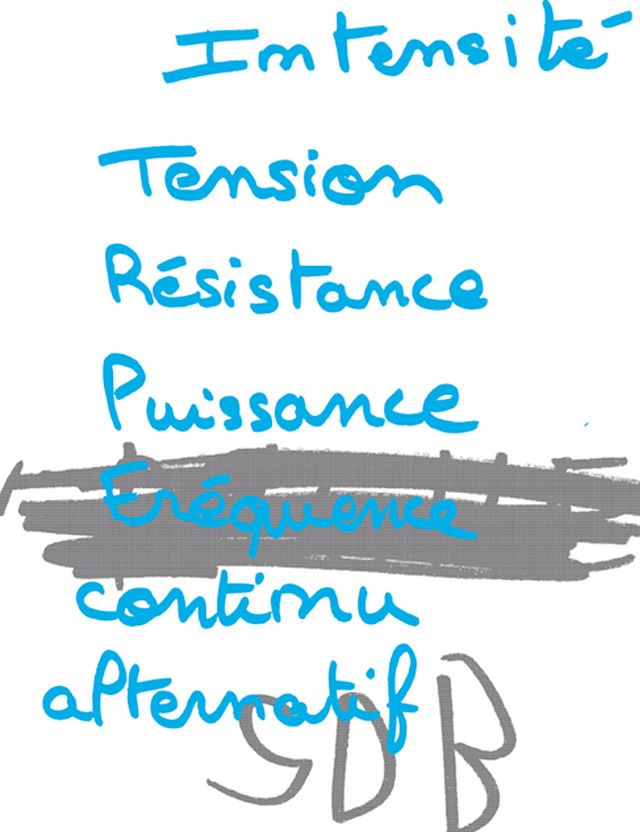 Intensité
Tension
Résistance
Puissance
Fréquence
continu
alternatif
SDB